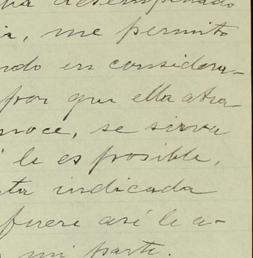 ha desempeñado
i, me permito
ndo en considera-
por que ella atra-
noce, se sirva
le es posible,
ta indicada
fuere así le a-
mi parte.